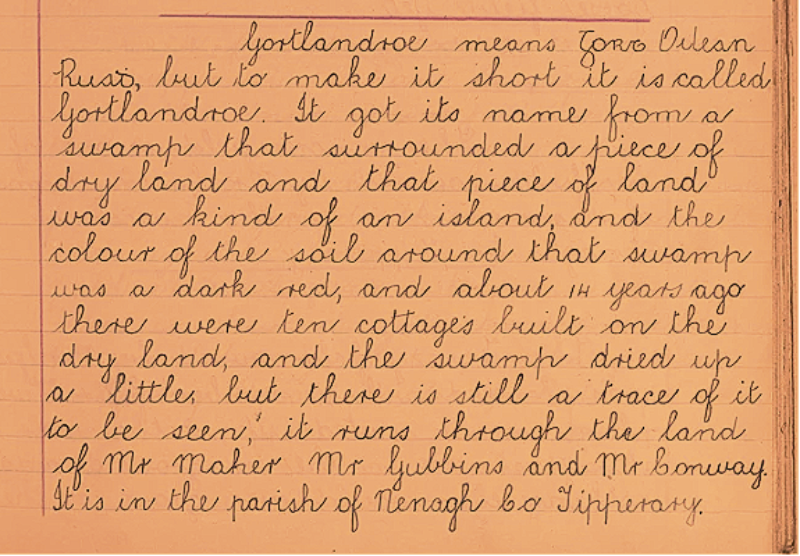 Gortlandroe means Gort Oilean
Ruad, but to make it short it is called
Gortlandroe. It got its name from a
swamp that surrounded a piece of
dry land and that piece of land
was a kind of an island, and the
colour of the soil around that swamp
was a dark red, and about 14 years ago
there were ten cottages built on the
dry land, and the swamp dried up
a little, but there is still a trace of it
to be seen, it runs through the land
of Mr Maher Mr Gubbins and Mr Conway.
It is in the parish of Nenagh Co Tipperary.